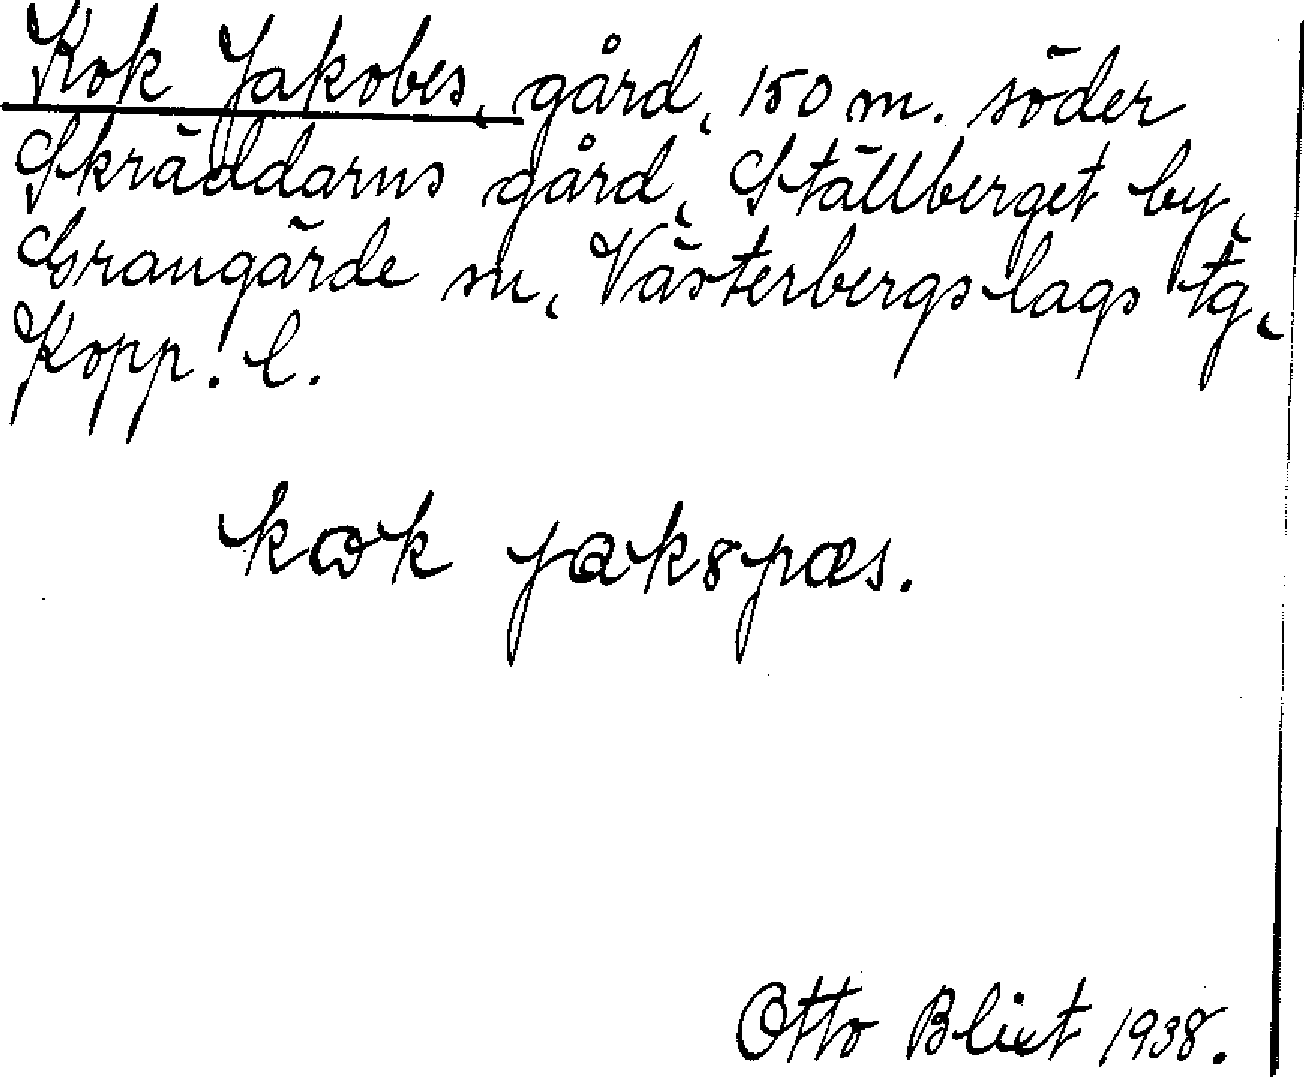 Kok Jakobes, gård, 150 m. söder
Skräddarns gård, Ställberget by,
Grangärde sn, Västerbergslags tg,
Kopp. l.
Otto Blixt 1938.